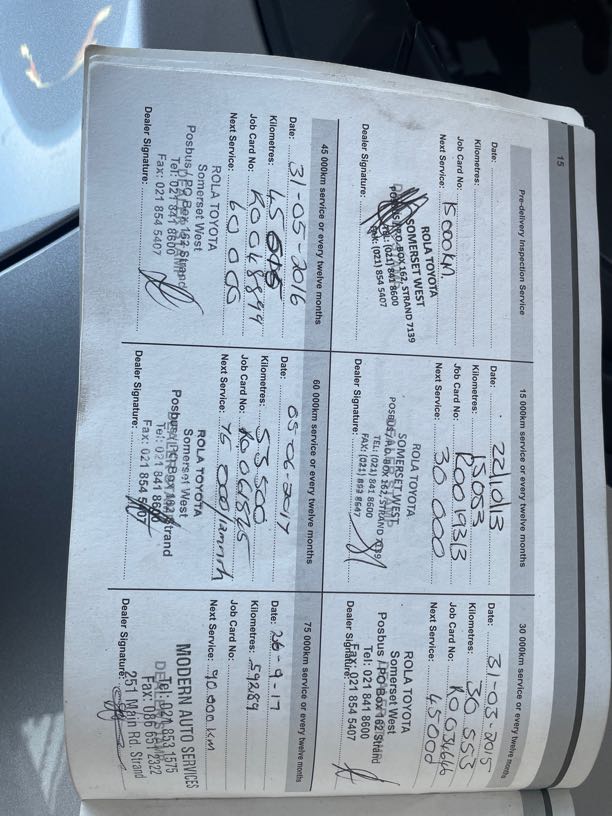 15
Pre-delivery Inspection Service
Date:
Kilometres:
Job Card No:
Next Service: 15000KM
ROLA TOYOTA
SOMERSET WEST
POSBUS/P.O. BOX 162, STRAND 7139
TEL: (021) 841 8600
FAX: (021) 854 5407
Dealer Signature:
15 000km service or every twelve months
Date: 22/10/13
Kilometres: 15053
Job Card No: R0019313
Next Service: 30 000
ROLA TOYOTA
SOMERSET WEST
POSBUS/P.O. BOX 162, STRAND 7139
TEL: (021) 841 8600
FAX: (021) 892 8647
Dealer Signature:
30 000km service or every twelve months
Date: 31-03-2015
Kilometres: 30 553
Job Card No: R0034646
Next Service: 45000
ROLA TOYOTA
Somerset West
Posbus / PO Box 162 Strand
Tel: 021 841 8600
Fax: 021 854 5407
Dealer Signature:
45 000km service or every twelve months
Date: 31-05-2016
Kilometres:
Job Card No: R0048899
Next Service: 60 000
ROLA TOYOTA
Somerset West
Posbus / PO Box 162 Strand
Tel: 021 841 8600
Fax: 021 854 5407
Dealer Signature:
60 000km service or every twelve months
Date: 05-06-2017
Kilometres: 55500
Job Card No:
Next Service: 75 000
ROLA TOYOTA
Somerset West
Posbus / PO Box 162 Strand
Tel: 021 841 8600
Fax: 021 854 5407
Dealer Signature:
75 000km service or every twelve months
Date: 26-9-17
Kilometres: 59289
Job Card No:
Next Service: 90 000 km
MODERN AUTO SERVICES
Tel: 021 853 1575
Fax: 086 651 2322
251 Main Rd. Strand
Dealer Signature: